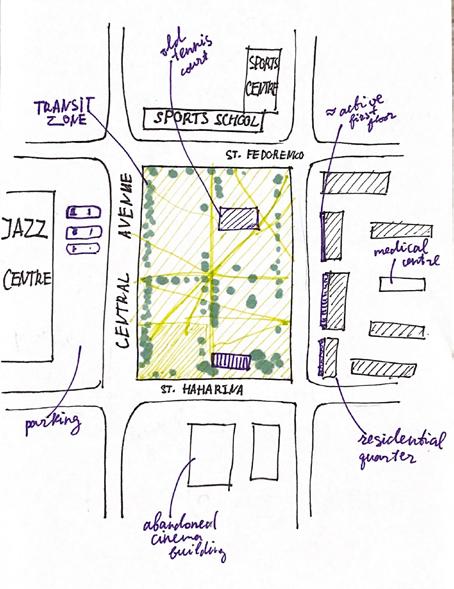 old
tennis
court
SPORTS
CENTRE
TRANSIT
ZONE
SPORTS SCHOOL
≈ active
first
floor
ST. FEDORENCO
CENTRAL AVENUE
JAZZ
CENTRE
medical
centre
ST. HAHARINA
parking
residential
quarter
abandoned
cinema
building